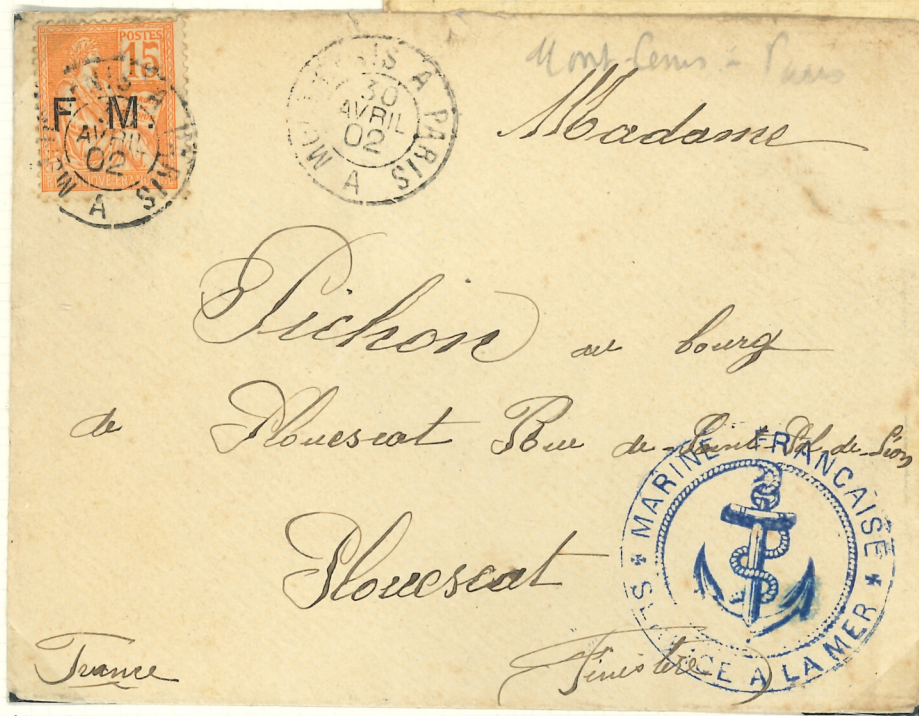 POSTES
15
F. M.
AVRIL
02
PARIS A PARIS
30
AVRIL
02
A
Mont Cenis à Paris
Madame
Pichon au bourg
de Plouescat Rue de Saint Pol de Léon
Plouescat
France
(Finistère)
MARINE FRANCAISE
A LA MER